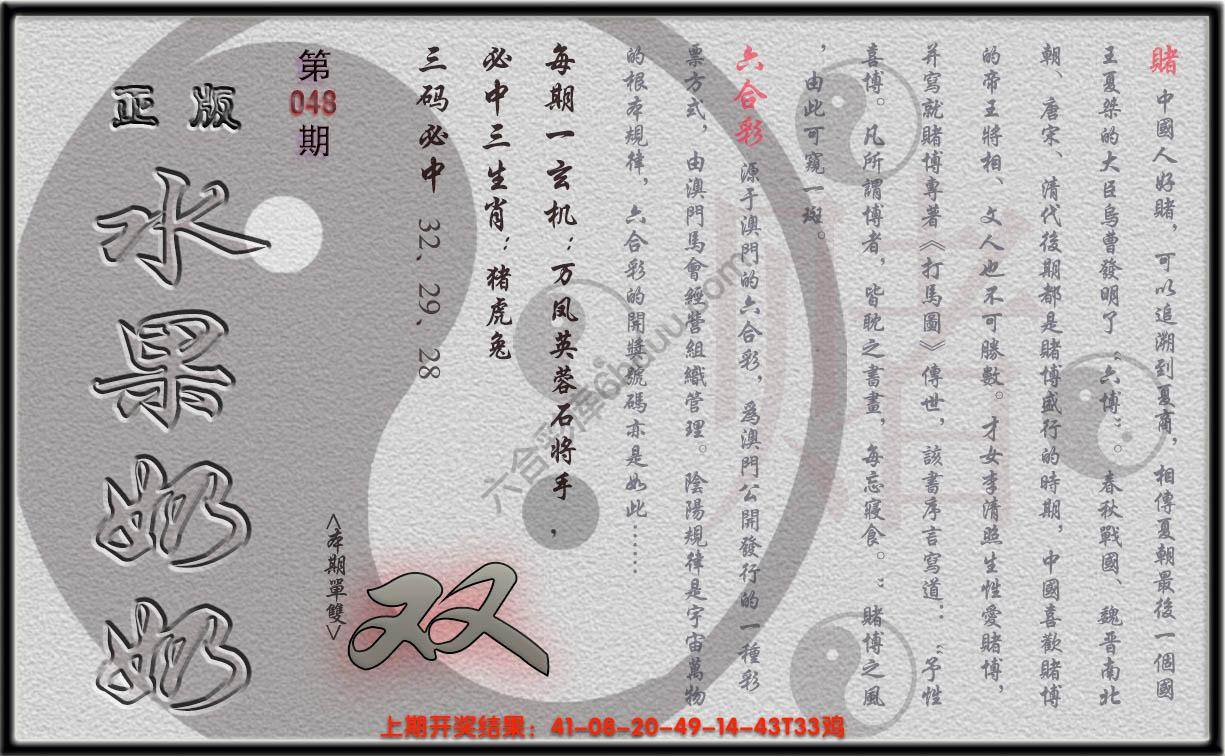 賭 中國人好賭，可以追溯到夏商，相傳夏朝最後一個國
王夏桀的大臣烏曹發明了“六博”。春秋戰國、魏晋南北
朝、唐宋、清代後期都是賭博盛行的時期，中國喜歡賭博
的帝王將相、文人也不可勝數。才女李清照生性愛賭博，
并寫就賭博專著《打馬圖》傳世，該書序言寫道：“予性
喜博。凡所謂博者，皆耽之書畫，每忘寢食。”賭博之風
，由此可窺一斑。
六合彩 源于澳門的六合彩，爲澳門公開發行的一種彩
票方式，由澳門馬會經營組織管理。陰陽規律是宇宙萬物
的根本規律，六合彩的開獎號碼亦是如此……
每期一玄机：万凤英蓉石将手，
必中三生肖：猪虎兔
三码必中 32、29、28
第
048
期
正版
水果奶奶
<本期單雙>
双
上期开奖结果：41-08-20-49-14-43T33鸡